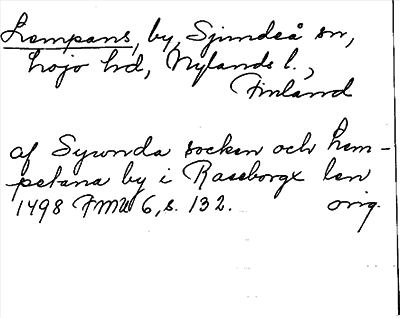 Lempans, by, Sjundeå sn,
Lojo hd, Nylands l.,
Finland
af Sywnda socken och Lem-
petana by i Raseborgx len
1498 FMU 6, s. 132. orig.